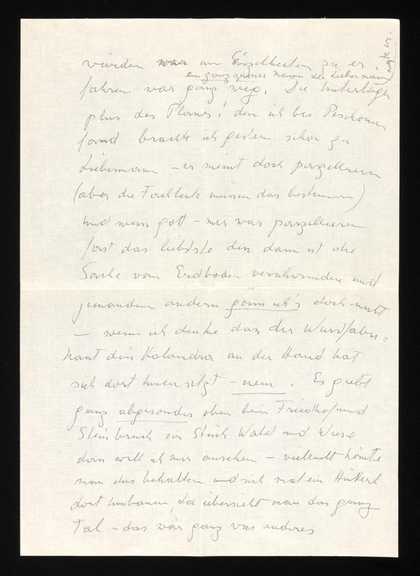 würden um Einzelheiten zu er-
fahren war ganz weg. Die
plus des Planes! den ich bei
fand brachte ich gestern schon zu
Liebermann – er meint doch parzellieren
(aber die Fachleute müssen das bestimmen)
und mein Gott – mir war parzellieren
fast das liebste denn dann ist die
Sache vom Erdboden verschwunden und
jemandem andern gönn ich's doch nicht
– wenn ich denke dass der Wurstfabri-
kant dein Kalandra an der Hand hat
sich dort hinein setzt – nein. Es giebt
ganz abgesondert oben beim Friedhof und
Steinbruch ein Stück Wald und Wiese
das will ich mir ansehen – vielleicht könnte
man das behalten und sich mal ein
dort hinbauen da übersieht man das ganze
Tal – das wär ganz was anderes